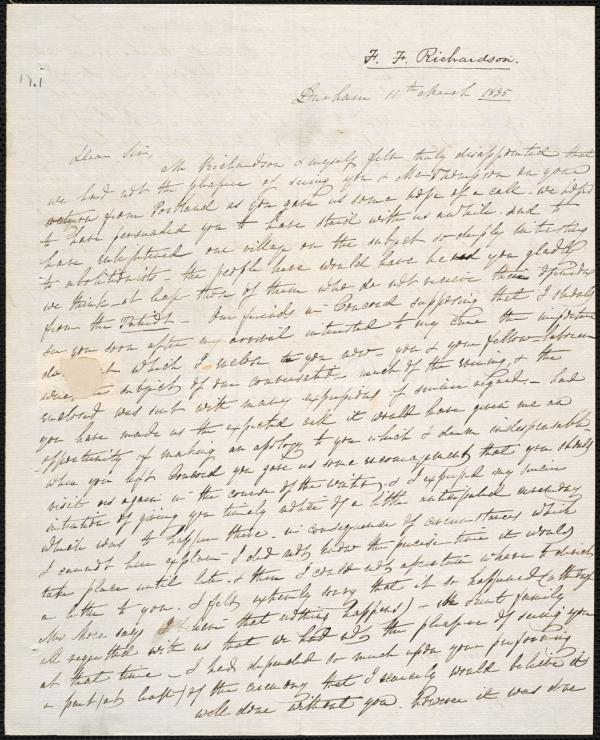 F. F. Richardson.
17.1
Durham 11th March 1835
Dear Sir,
Mr Richardson & myself felt truly disappointed that
we had not the pleasure of seeing you & Mr Thompson on your
return from Portland as you gave us some hope of a call. We hoped
to have persuaded you to have staid with us awhile and to
have enlightened our village on the subject so deeply interesting
to abolitionists - the people here would have heard you gladly
we think at least those of them who do not receive their opinions
from the Patriot - Our friends in Concord supposing that I should
see you soon after my arrival intrusted to my care the
which I enclose to you now - you & your fellow-laborer
were the subject of our conversation much of the evening, & the
enclosed was sent with many expressions of sincere regard. - had
you have made us the expected call it would have given me an
opportunity of making an apology to you which I deem indispensable -
when you left Concord you gave us some encouragement that you should
visit us again in the course of the winter, & I expressed my sincere
intention of giving you timely notice of a little anticipated ceremony
which was to happen there. in consequence of circumstances which
I cannot here explain I did not know the precise time it would
take place until late, & then I could not ascertain where to direct
a letter to you. I felt extremely sorry that it so happened (altho
Mrs More says that nothing happens) - the family
all regretted with us that we had not the pleasure of seeing you
at that time - I had depended so much upon your performing
a part (at least) of the ceremony that I scarcely would believe it
well done without you. however it was done